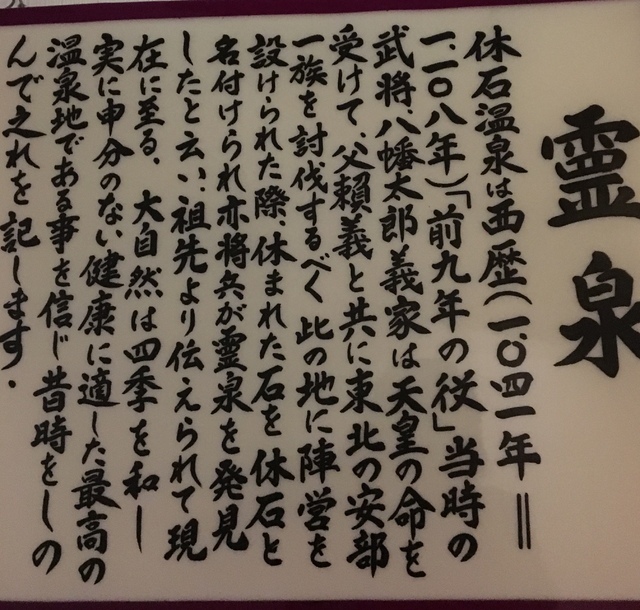 霊泉
休石温泉は西歴(一、〇四一年=
一、一〇八年)「前九年の役」当時の
武将、八幡太郎義家は天皇の命を
受けて、父頼義と共に東北の安部
一族を討伐するべく此の地に陣営を
設けられた際、休まれた石を休石と
名付けられ亦将兵が霊泉を発見
したと云い、祖先より伝えられて現
在に至る、大自然は四季を和し
実に申分のない健康に適した最高の
温泉地である事を信じ昔時をしの
んで之れを記します.